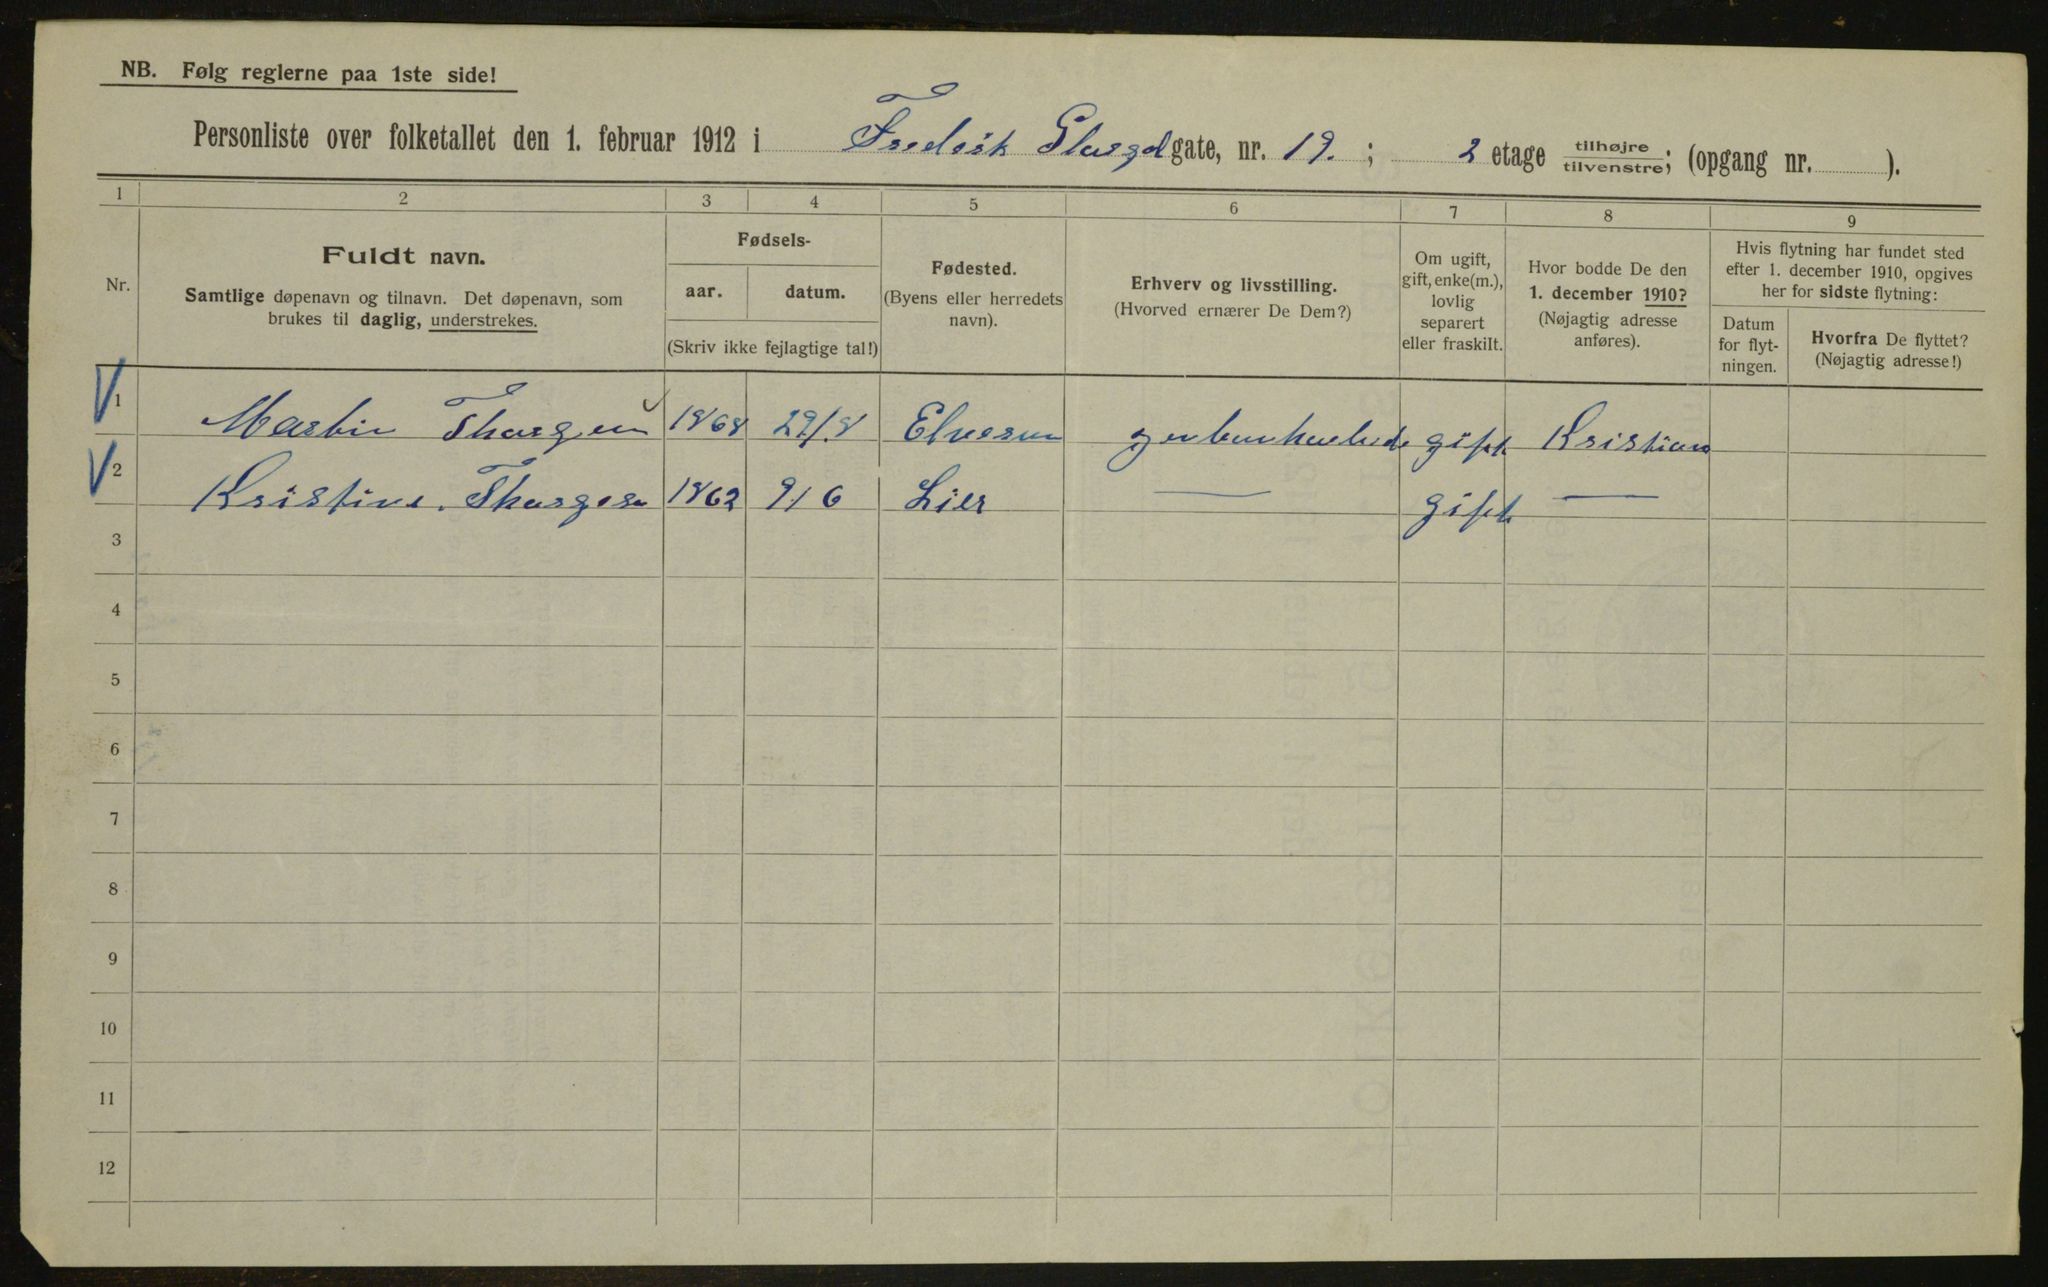 NB. Følg reglerne paa 1ste side!
Personliste over folketallet den 1. februar 1912 i Frederik gate, nr. 19. ; 2 etage tilhøjre/tilvenstre; (opgang nr. ).
1 2 3 4 5 6 7 8 9
Nr.
Fuldt navn.
Samtlige døpenavn og tilnavn. Det døpenavn, som
brukes til daglig, understrekes.
Fødsels-
aar. datum.
(Skriv ikke fejlagtige tal!)
Fødested.
(Byens eller herredets
navn).
Erhverv og livsstilling.
(Hvorved ernærer De Dem?)
Om ugift,
gift, enke(m.),
lovlig
separert
eller fraskilt.
Hvor bodde De den
1. december 1910?
(Nøjagtig adresse
anføres).
Hvis flytning har fundet sted
efter 1. december 1910, opgives
her for sidste flytning:
Datum
for flyt-
ningen.
Hvorfra De flyttet?
(Nøjagtig adresse!)
1 Martin 1868 29/8 gift
2 Kristine 1862 9/6 Lier — gift —
3
4
5
6
7
8
9
10
11
12